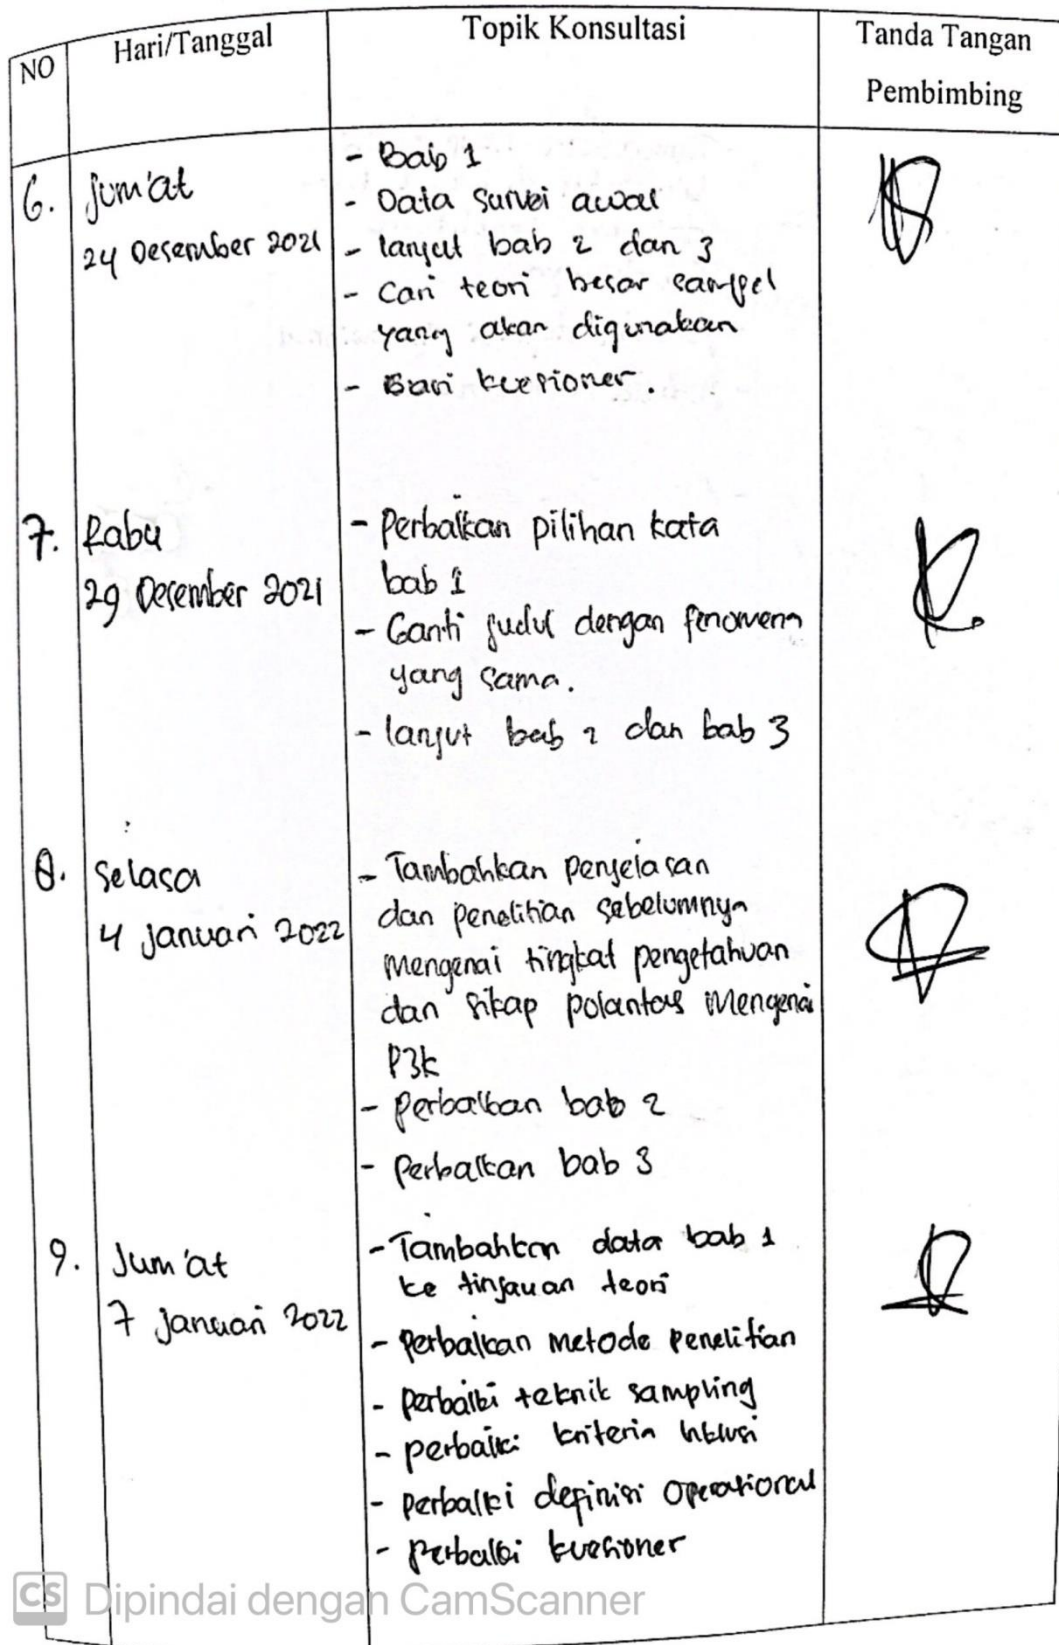 NO
Hari/Tanggal
Topik Konsultasi
Tanda Tangan
Pembimbing
6. Jum'at
24 Desember 2021
- Bab 1
- Data survei awal
- lanjut bab 2 dan 3
- Cari teori besar sampel
yang akan digunakan
- kuesioner.
7. Rabu
29 Desember 2021
- Perbaikan pilihan kata
bab 1
- Ganti judul dengan fenomena
yang sama.
- lanjut bab 2 dan bab 3
8. Selasa
4 Januari 2022
- Tambahkan penjelasan
dan penelitian sebelumnya
mengenai tingkat pengetahuan
dan sikap polantas mengenai
P3k
- perbaikan bab 2
- perbaikan bab 3
9. Jum'at
7 Januari 2022
- Tambahkan data bab 1
ke tinjauan teori
- perbaikan metode penelitian
- perbaiki teknik sampling
- perbaiki kriteria inklusi
- perbaiki definisi operasional
- perbaiki kuesioner
CS Dipindai dengan CamScanner